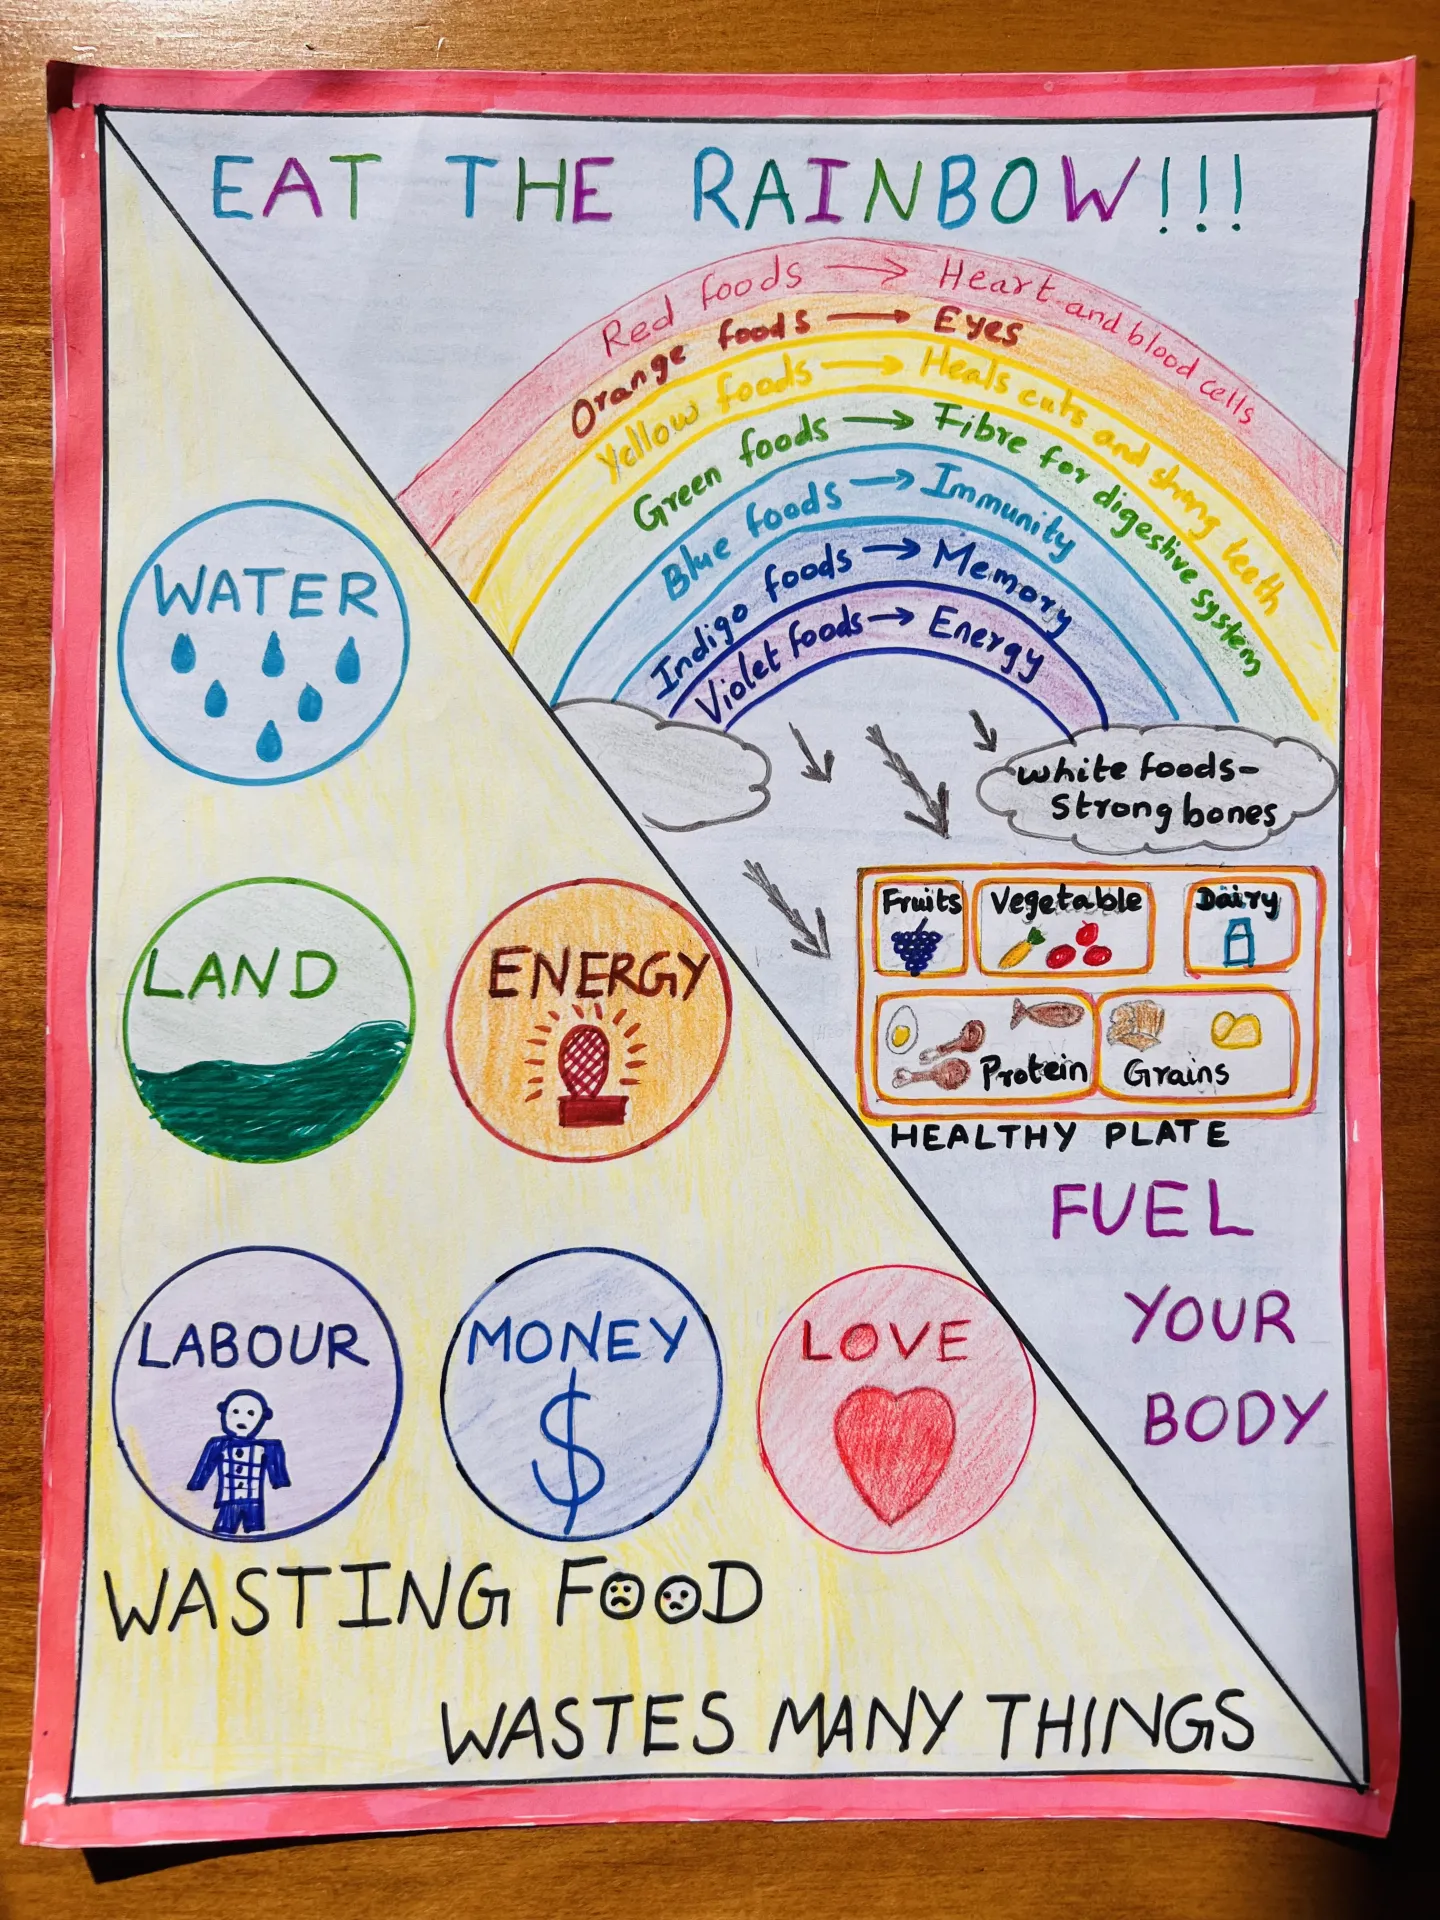 EAT THE RAINBOW!!!
Red foods → Heart and blood cells
Orange foods → Eyes
Yellow foods → Heals cuts and strong teeth
Green foods → Fibre for digestive system
Blue foods → Immunity
Indigo foods → Memory
Violet foods → Energy
White foods-
Strong bones
Fruits
Vegetable
Dairy
Protein
Grains
HEALTHY PLATE
FUEL
YOUR
BODY
WATER
LAND
ENERGY
LABOUR
MONEY
$
LOVE
WASTING FOOD
WASTES MANY THINGS